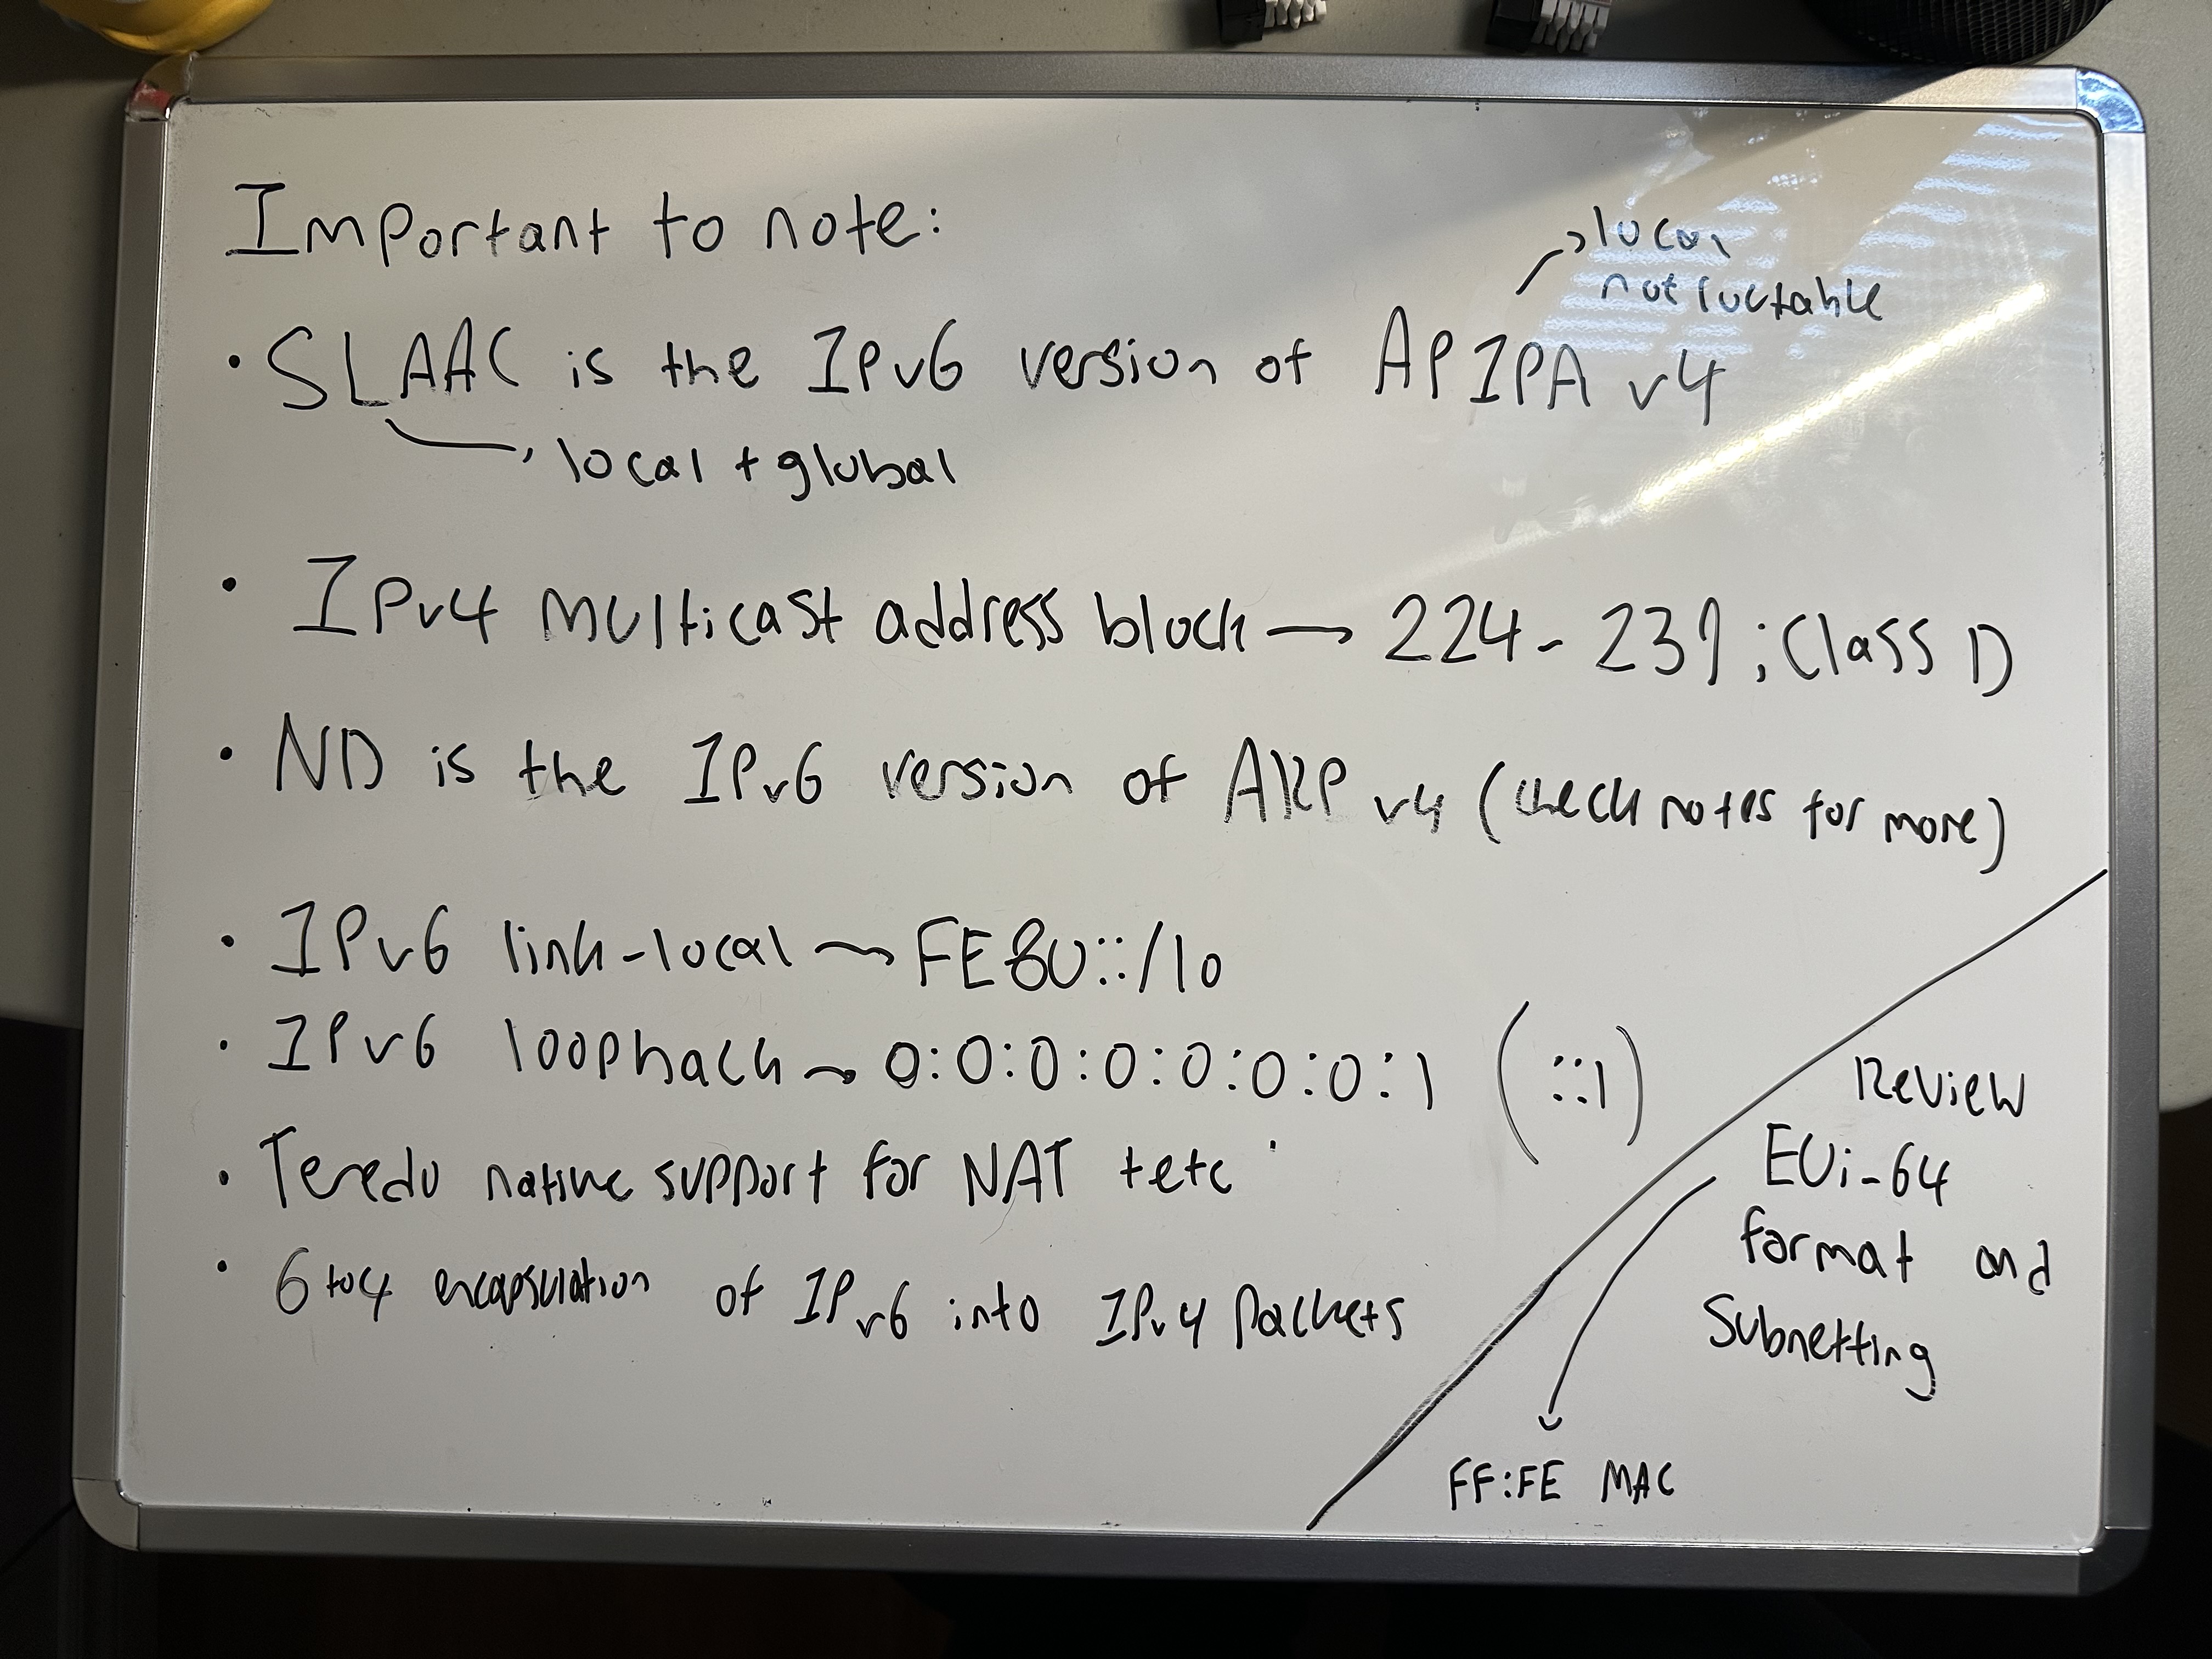 Important to note:
→ local
not routable
• SLAAC is the IPv6 version of APIPA v4
→ local + global
• IPv4 multicast address block → 224-239 ; Class D
• ND is the IPv6 version of ARP v4 (check notes for more)
• IPv6 link-local → FE80::/10
• IPv6 loopback → 0:0:0:0:0:0:0:1 (::1)
• Teredo native support for NAT + etc
• 6to4 encapsulation of IPv6 into IPv4 Packets
Review
EUi-64
format and
Subnetting
FF:FE MAC